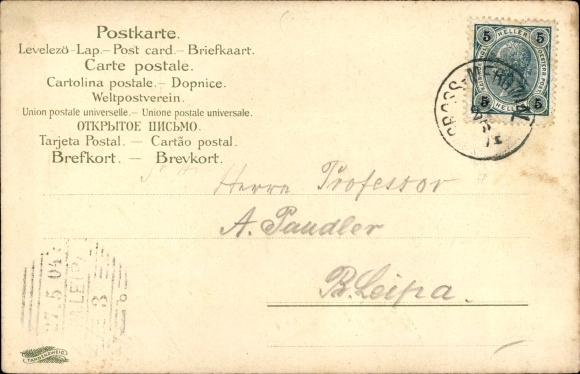 Postkarte.
Levelezö-Lap.–Post card.–Briefkaart.
Carte postale.
Cartolina postale.– Dopnice.
Weltpostverein.
Union postale universelle.– Unione postale universale.
ОТКРЫТОЕ ПИСЬМО.
Tarjeta Postal. – Cartão postal.
Brefkort. – Brevkort.
5 HELLER 5
5 HELLER 5
Herrn Professor
A. Paudler
B. Leipa.
27.5 04
TANNENZWEIG